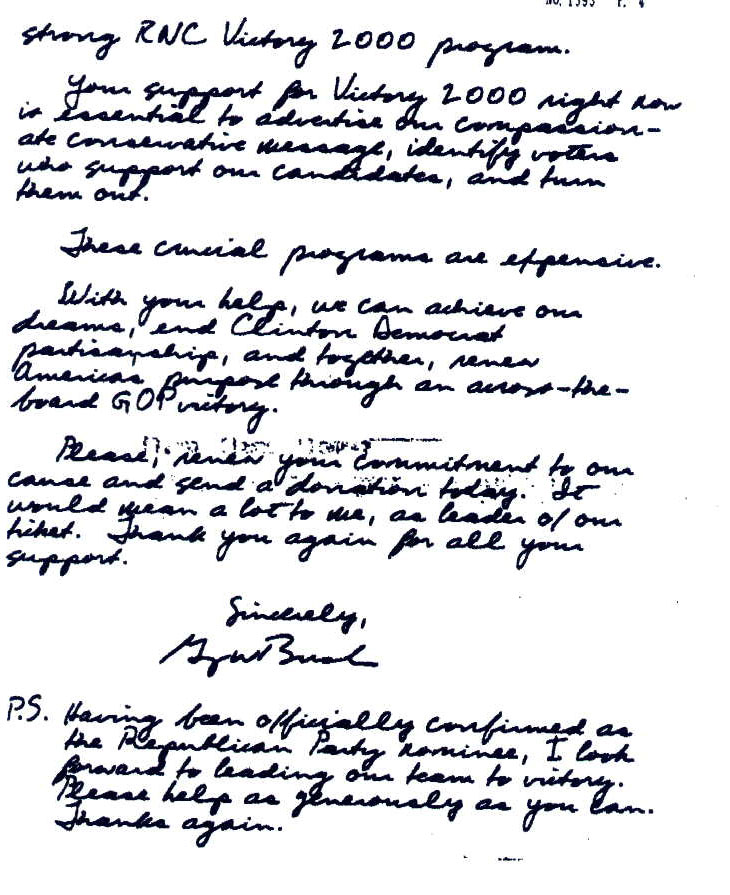 NO. 1393 P. 4
strong RNC Victory 2000 program.
Your support for Victory 2000 right now
is essential to advertise our compassion-
ate conservative message, identify voters
who support our candidates, and turn
them out.
These crucial programs are expensive.
With your help, we can achieve our
dreams, end Clinton Democrat
partisanship, and together, renew
America's purpose through an across-the-
board GOP victory.
Please, renew your commitment to our
cause and send a donation today. It
would mean a lot to me, as leader of our
ticket. Thank you again for all your
support.
Sincerely,
George W Bush
P.S. Having been officially confirmed as
the Republican Party nominee, I look
forward to leading our team to victory.
Please help as generously as you can.
Thanks again.